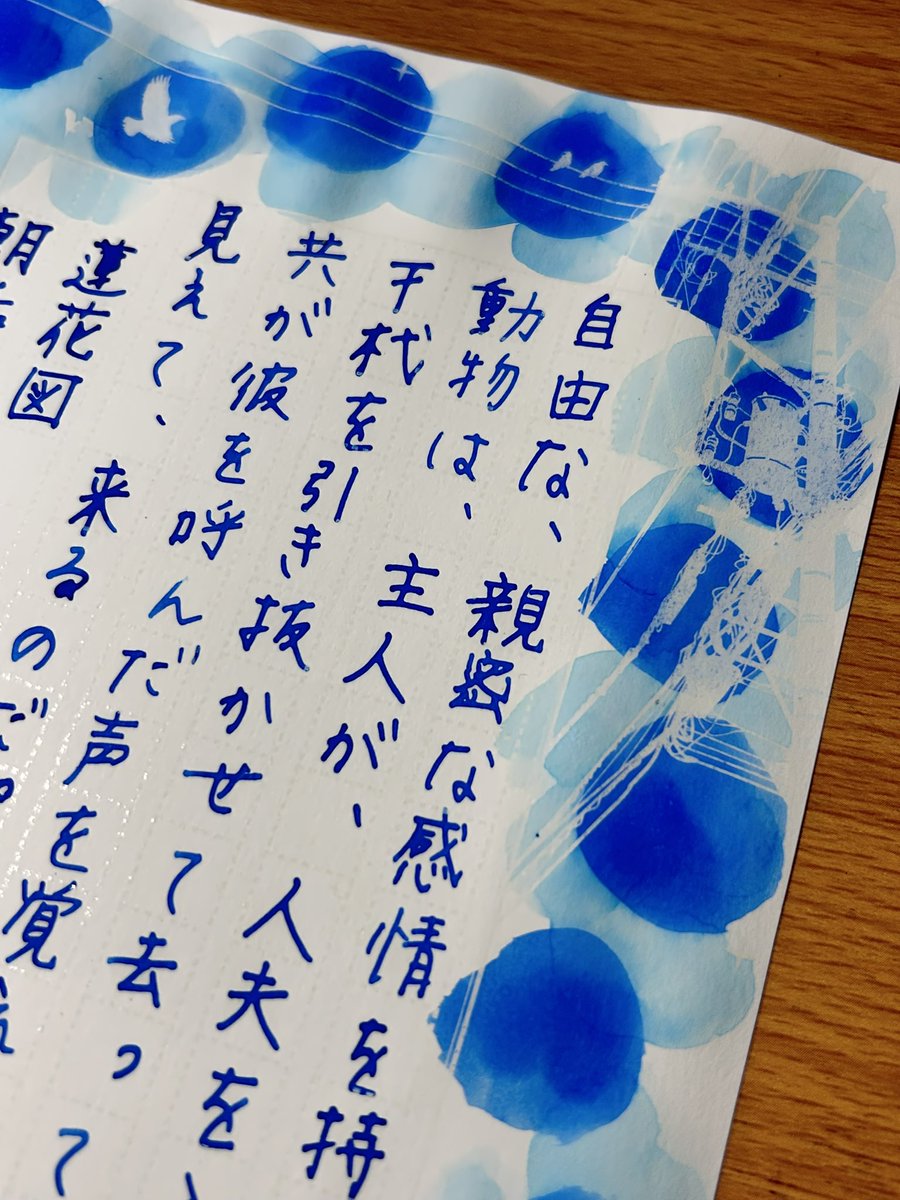 自由な、親密な感情を持
動物は、主人が、人夫を、
干杙を引き抜かせて去って
共が彼を呼んだ声を覚
見えて、来るのだ。
蓮花図
朝